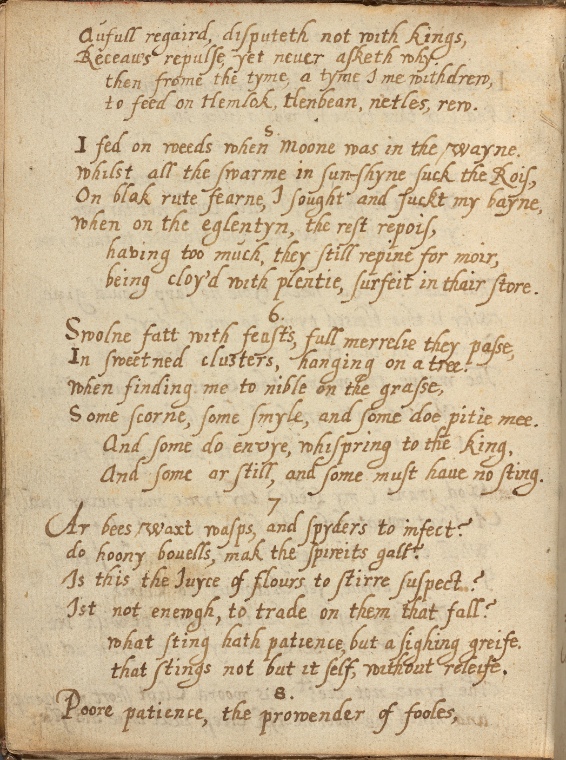 Aufull regaird, disputeth not with kings,
Receaws repulse, yet neuer asketh why,
then frome the tyme, a tyme I me withdrew,
to feed on Hemlok, Henbean, netles, rew.
5.
I fed on weeds when Moone was in the wayne.
whilst all the swarme in sun-shyne suck the Rois,
On blak rute fearne, I sought and suckt my bayne,
when on the eglentyn, the rest repois,
having too much, they still repine for moir,
being cloy'd with plentie, surfeit in thair store.
6.
Swolne fatt with feasts, full merrelie they passe,
In sweetned clusters, hanging on a tree.
when finding me to nible on the grasse,
Some scorne, some smyle, and some doe pitie mee.
And some do envye, whispring to the King,
And some ar still, and some must haue no sting.
7
Ar bees waxt wasps, and spyders to infect?
do hoony bouells, mak the spireits gall?
Is this the Iuyce of flours to stirre suspect?
Ist not enewgh, to trade on them that fall?
what sting hath patience, but a sighing greife.
that stings not but it self, without releife.
8.
Poore patience, the prowender of fooles,